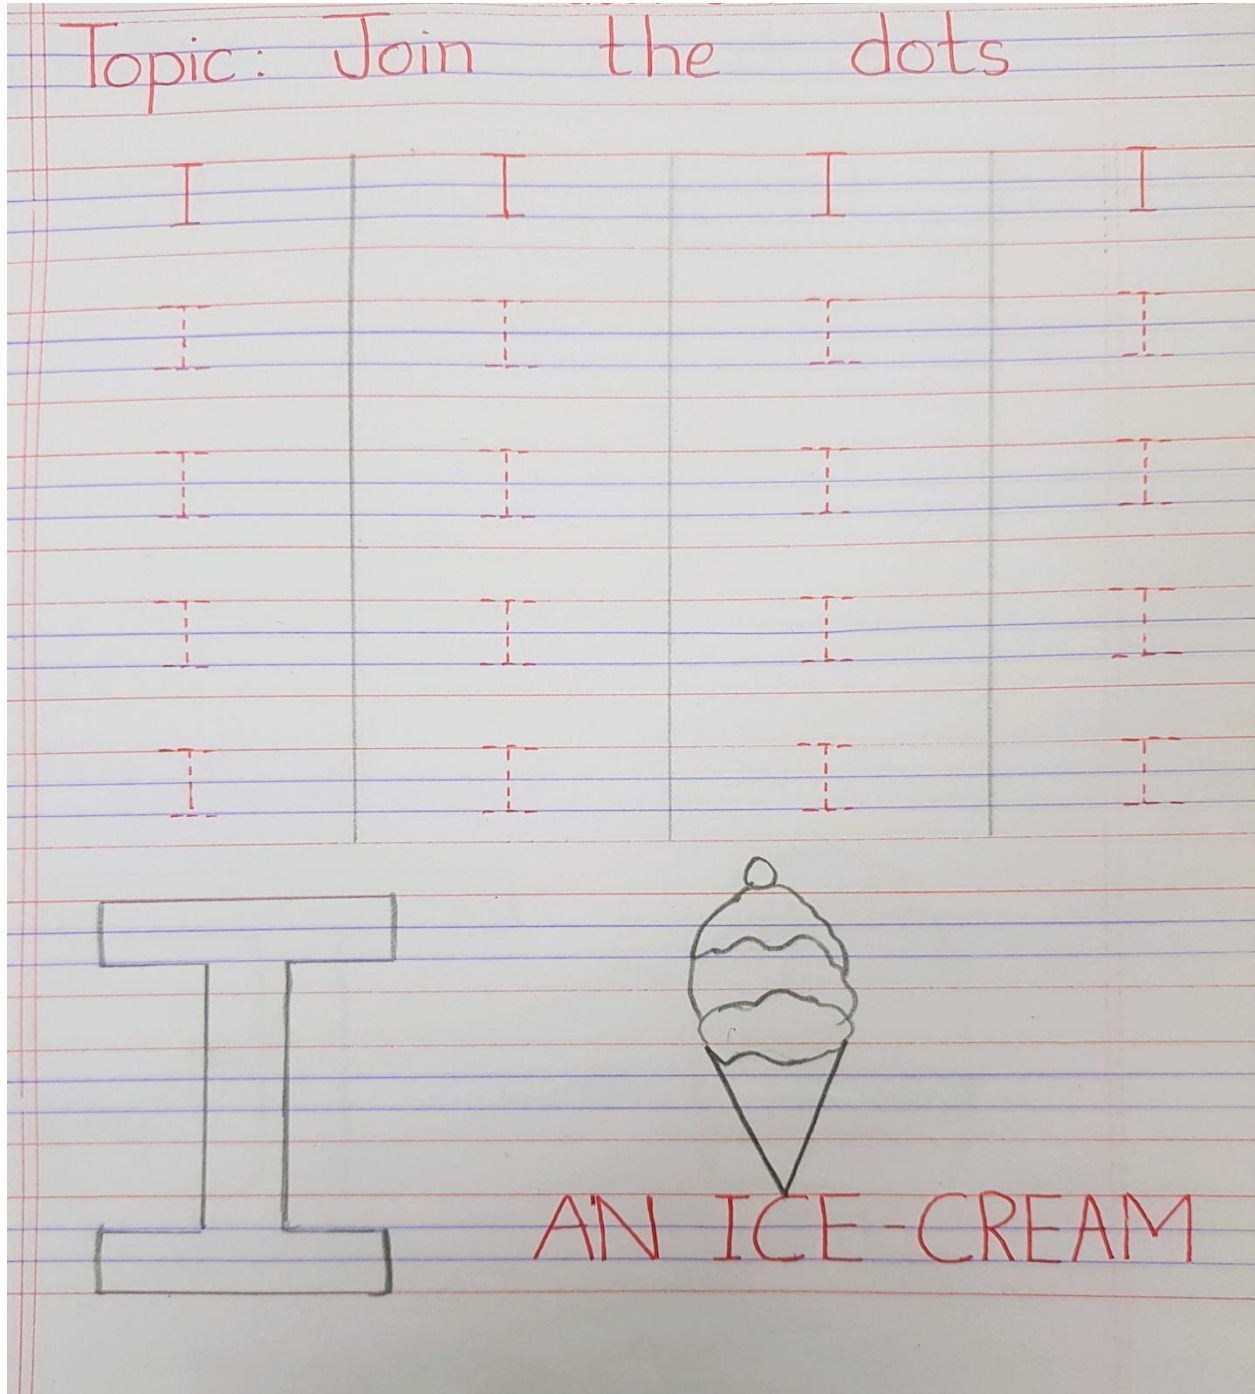 Topic: Join the dots
I I I I
I I I I
I I I I
I I I I
I I I I
I
AN ICE-CREAM